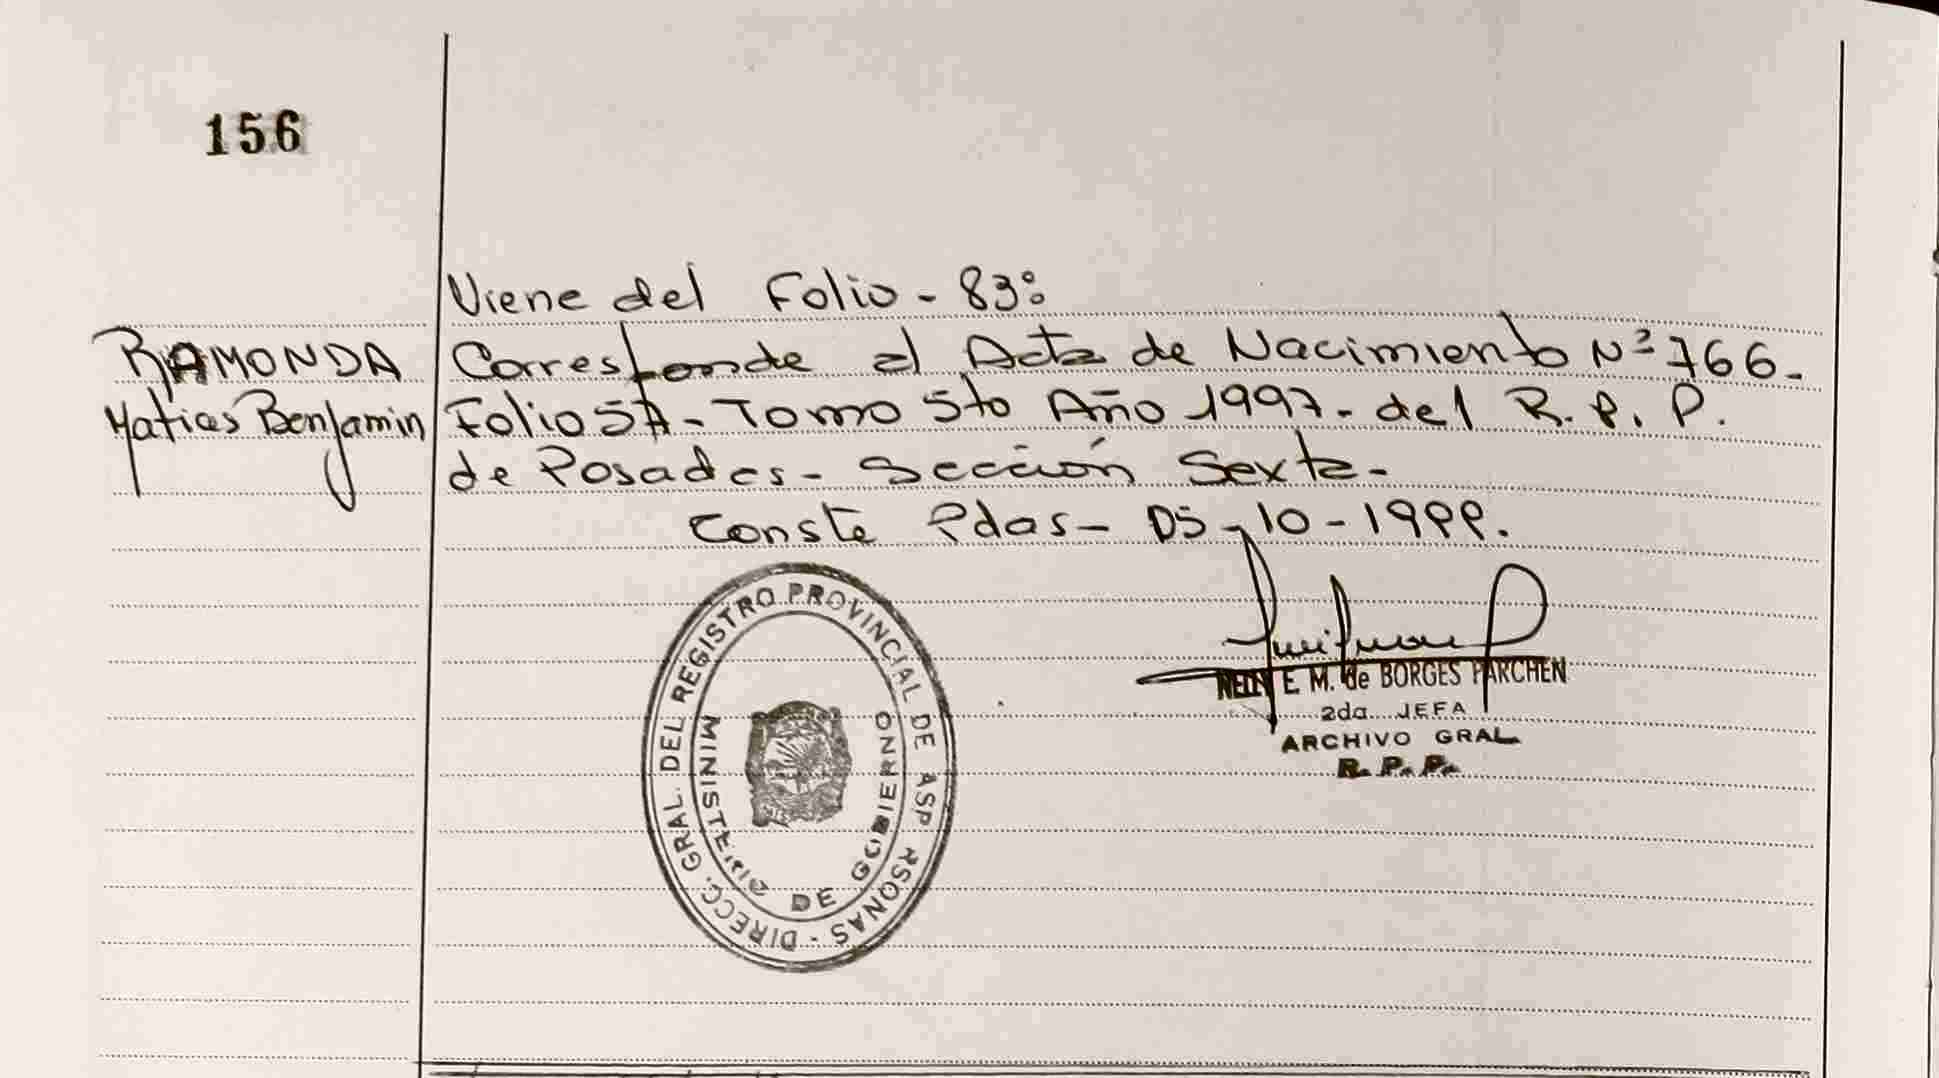 156
Viene del Folio - 83:
RAMONDA
Matias Benjamin
Corresponde al Acta de Nacimiento Nº 766.
Folio 5A - Tomo 5to Año 1997 - del R. P. P.
de Posadas - Sección Sexta -
Conste Pdas - 05 - 10 - 1999.
NELLY E. M. de BORGES PARCHEN
2da. JEFA
ARCHIVO GRAL.
R. P. P.
DIRECC. GRAL. DEL REGISTRO PROVINCIAL DE LAS PERSONAS -
MINISTERIO DE GOBIERNO